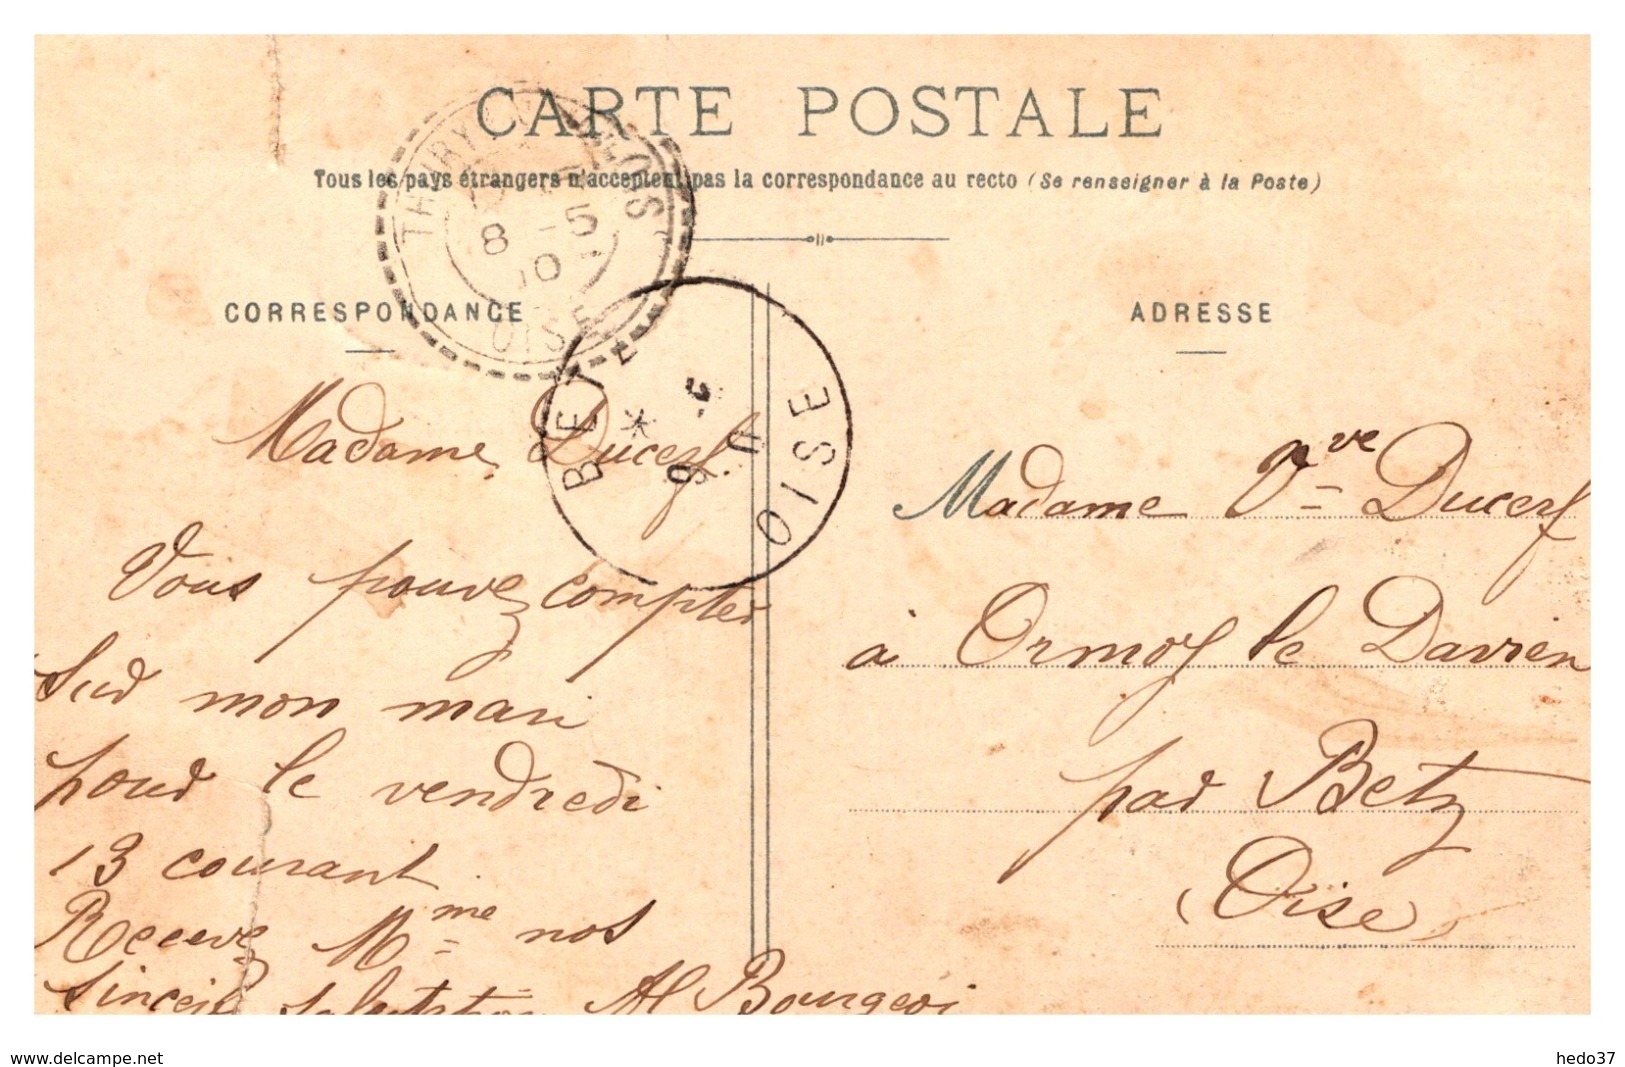 CARTE POSTALE
Tous les pays étrangers n'acceptent pas la correspondance au recto (Se renseigner à la Poste)
THURY
8 -5
10
OISE
CORRESPONDANCE
ADRESSE
BETZ
*
9 -5
OISE
Madame Ducerf
Vous pouvez compter
sur mon mari
pour le vendredi
13 courant
Recevez Mme nos
sincères salutations Al Bourgeois
Madame Vve Ducerf
à Ormoy le Davien
par Betz
(Oise)
www.delcampe.net
hedo37